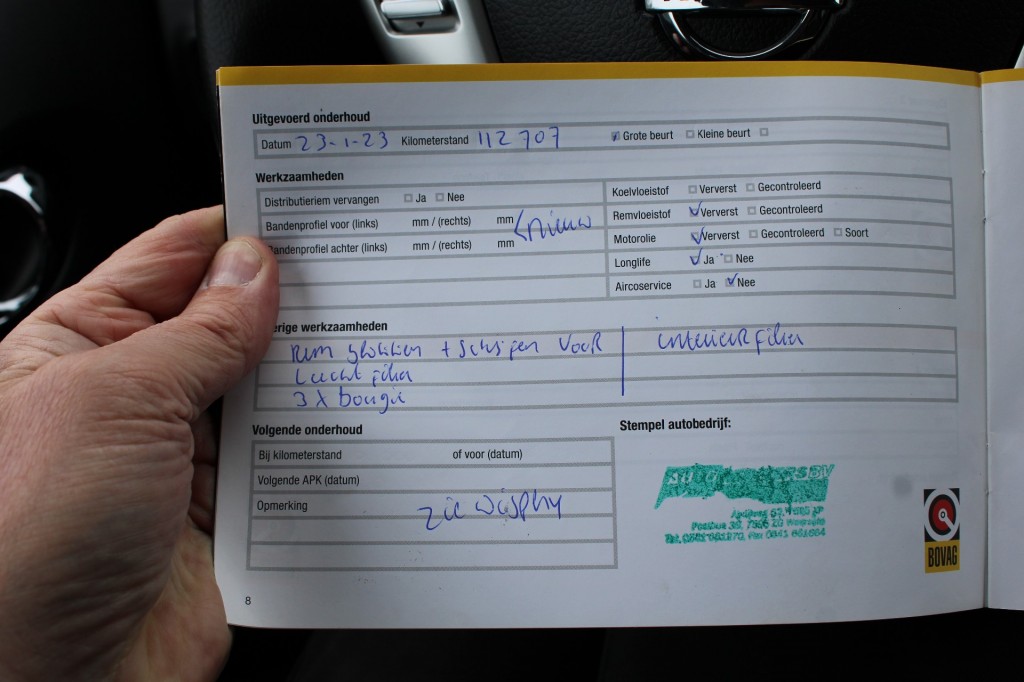 Uitgevoerd onderhoud
Datum 23-1-23 Kilometerstand 112707 Grote beurt Kleine beurt
Werkzaamheden
Distributieriem vervangen Ja Nee
Bandenprofiel voor (links) mm / (rechts) mm nieuw
Bandenprofiel achter (links) mm / (rechts) mm
Koelvloeistof Ververst Gecontroleerd
Remvloeistof Ververst Gecontroleerd
Motorolie Ververst Gecontroleerd Soort
Longlife Ja Nee
Aircoservice Ja Nee
erige werkzaamheden
Rem blokken + schijven voor
Lucht filter
3 x bougie
interieurfilter
Volgende onderhoud
Bij kilometerstand of voor (datum)
Volgende APK (datum)
Opmerking zie display
Stempel autobedrijf:
BOVAG
8